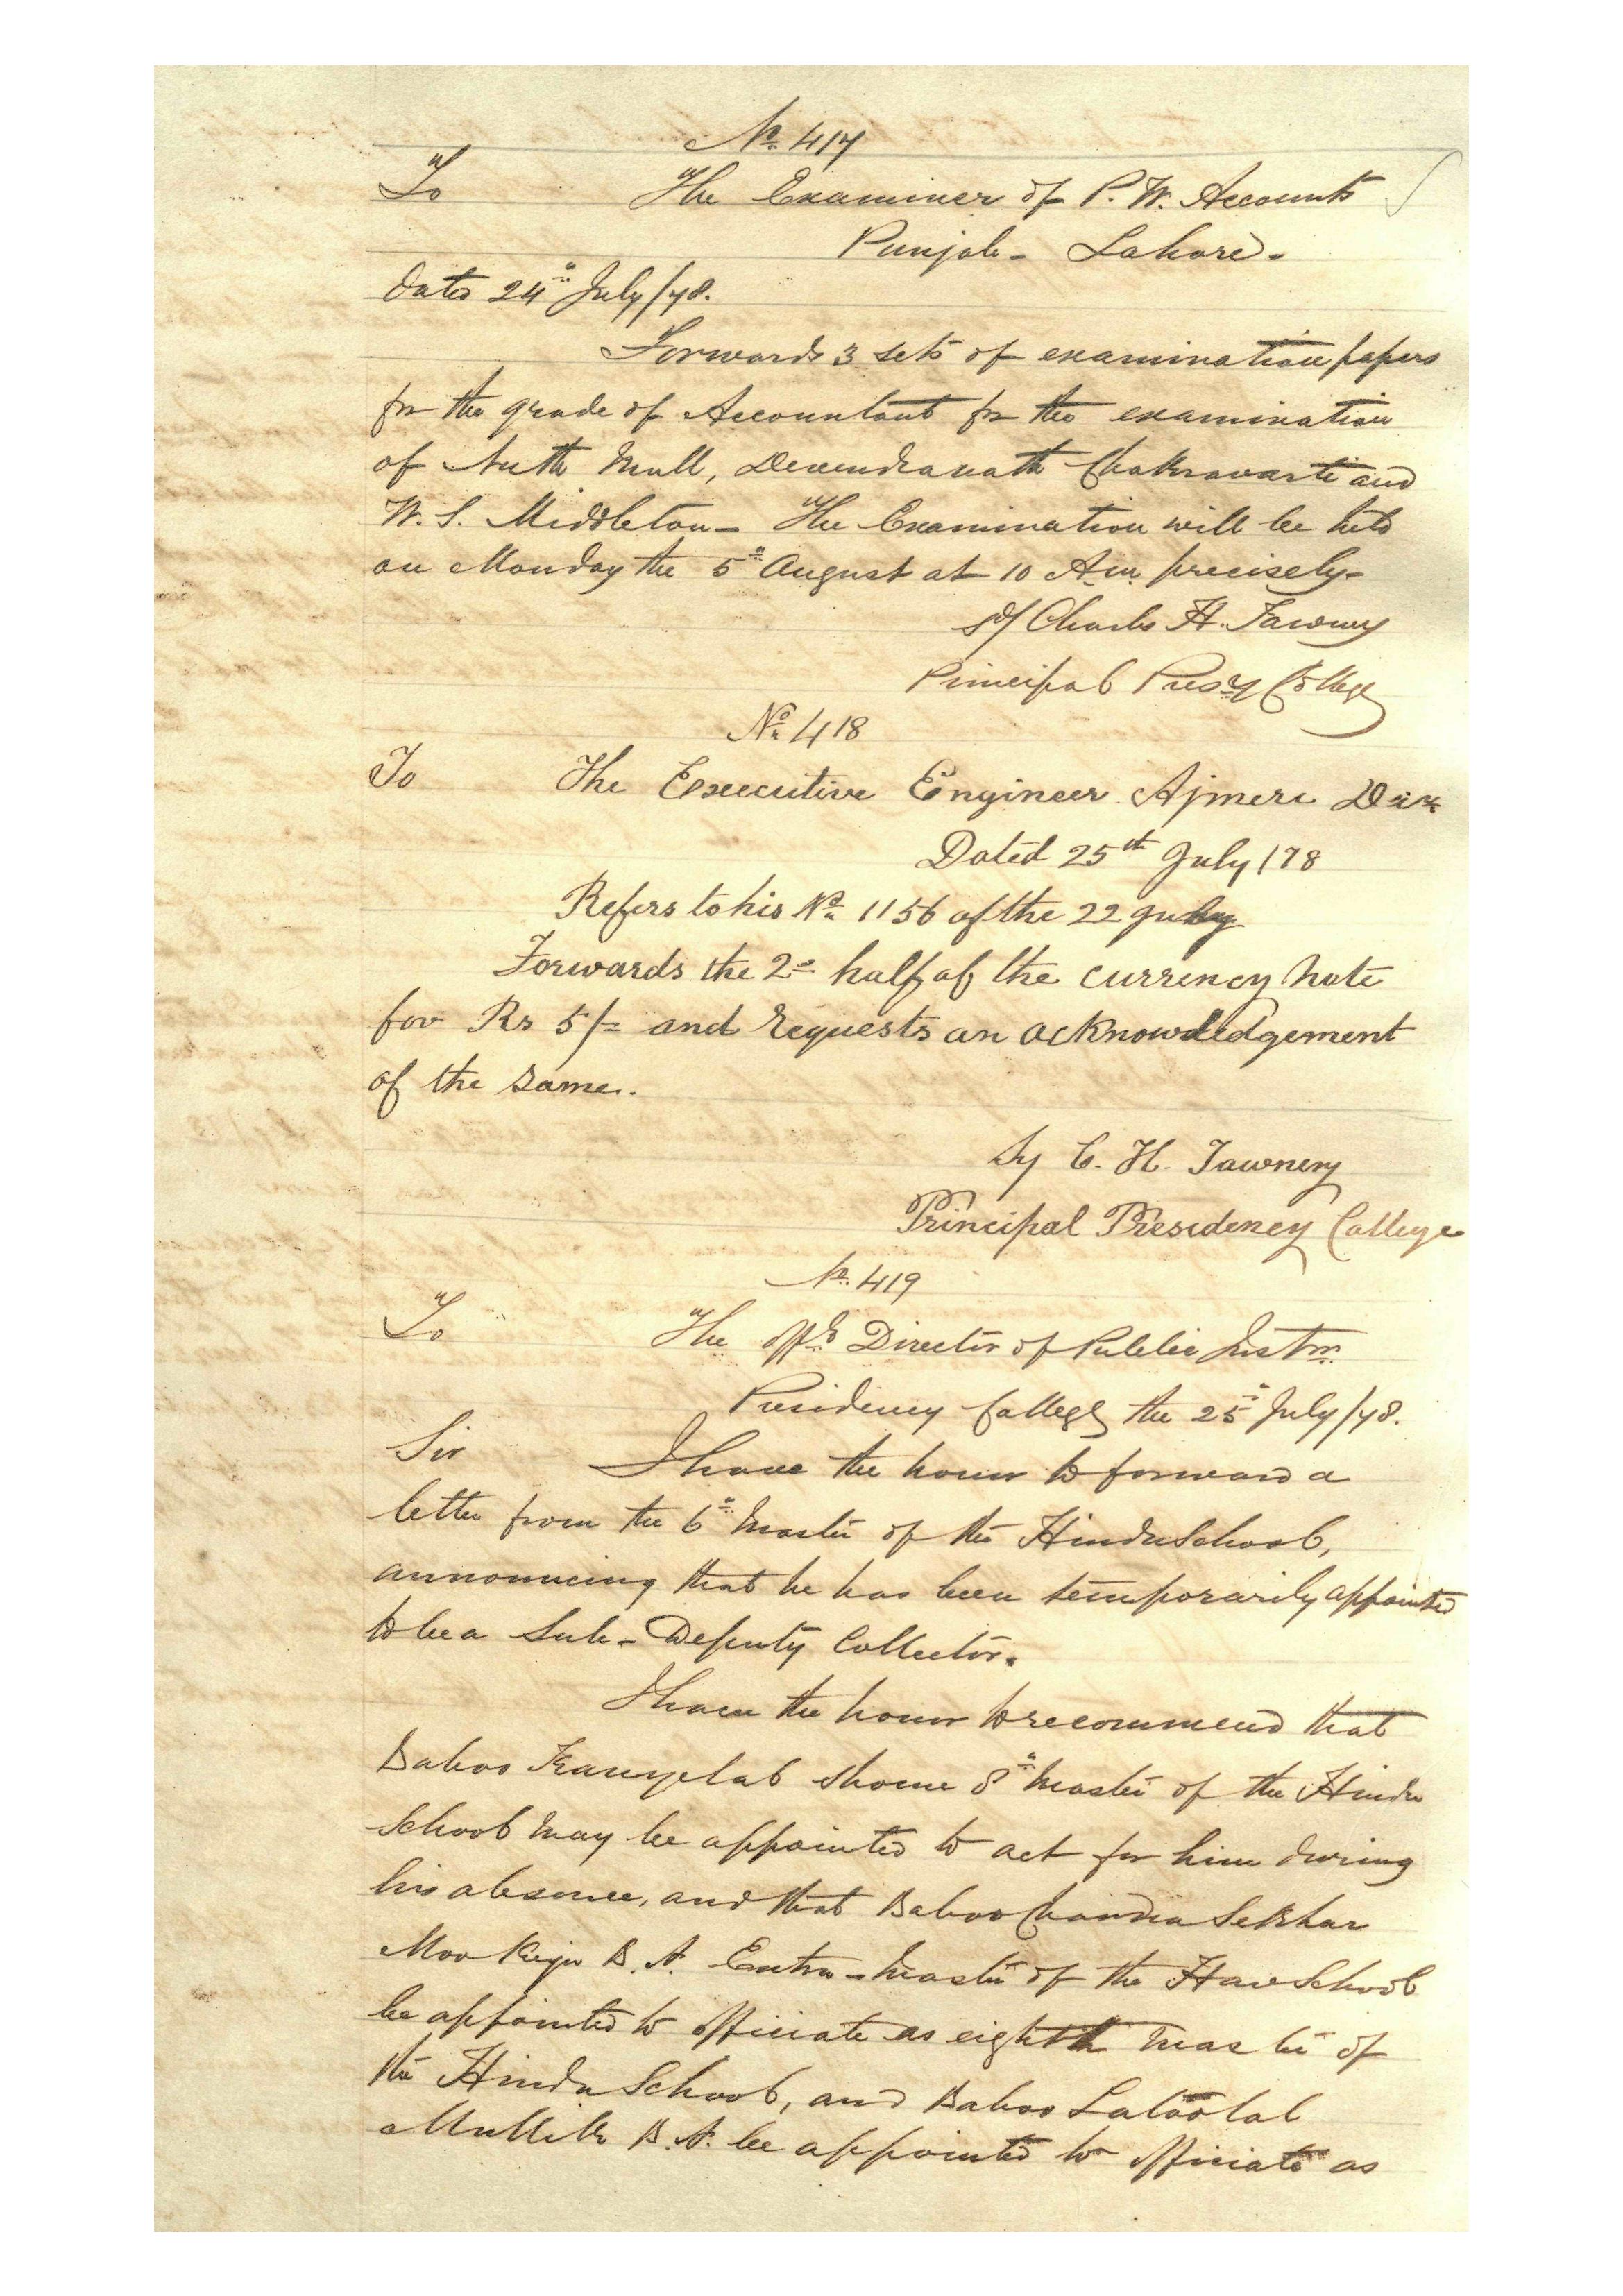 No. 417
To The Examiner of P. W. Accounts
Punjab - Lahore -
Dated 24th July /78.
Forwards 3 sets of examination papers
for the grade of Accountant for the examination
of Mull, Devendranath Chakravarti and
W. S. Middleton - The Examination will be held
on Monday the 5th August at 10 A.m. precisely -
Sd/ Charles H. Tawney
Principal Presy College
No. 418
To The Executive Engineer Ajmere Divn
Dated 25th July /78
Refers to his No. 1156 of the 22 July
Forwards the 2d half of the currency note
for Rs 5/- and requests an acknowledgement
of the same.
Sd/ C. H. Tawney
Principal Presidency College
No. 419
To The Offg Director of Public Instrn.
Presidency College the 25th July /78.
Sir I have the honor to forward a
letter from the 6th Master of the Hindu School,
announcing that he has been temporarily appointed
to be a Sub-Deputy Collector.
I have the honor to recommend that
Baboo Kanyelal Shome 8th Master of the Hindu
School may be appointed to act for him during
his absence, and that Baboo Chandra Sekhar
Mookerju B. A. Extra-Master of the Hare School
be appointed to officiate as eighth Master of
the Hindu School, and Baboo
Mullik B. A. be appointed to officiate as